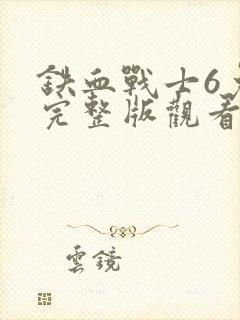 鉄血戰士6
完整版觀看
雲鏡